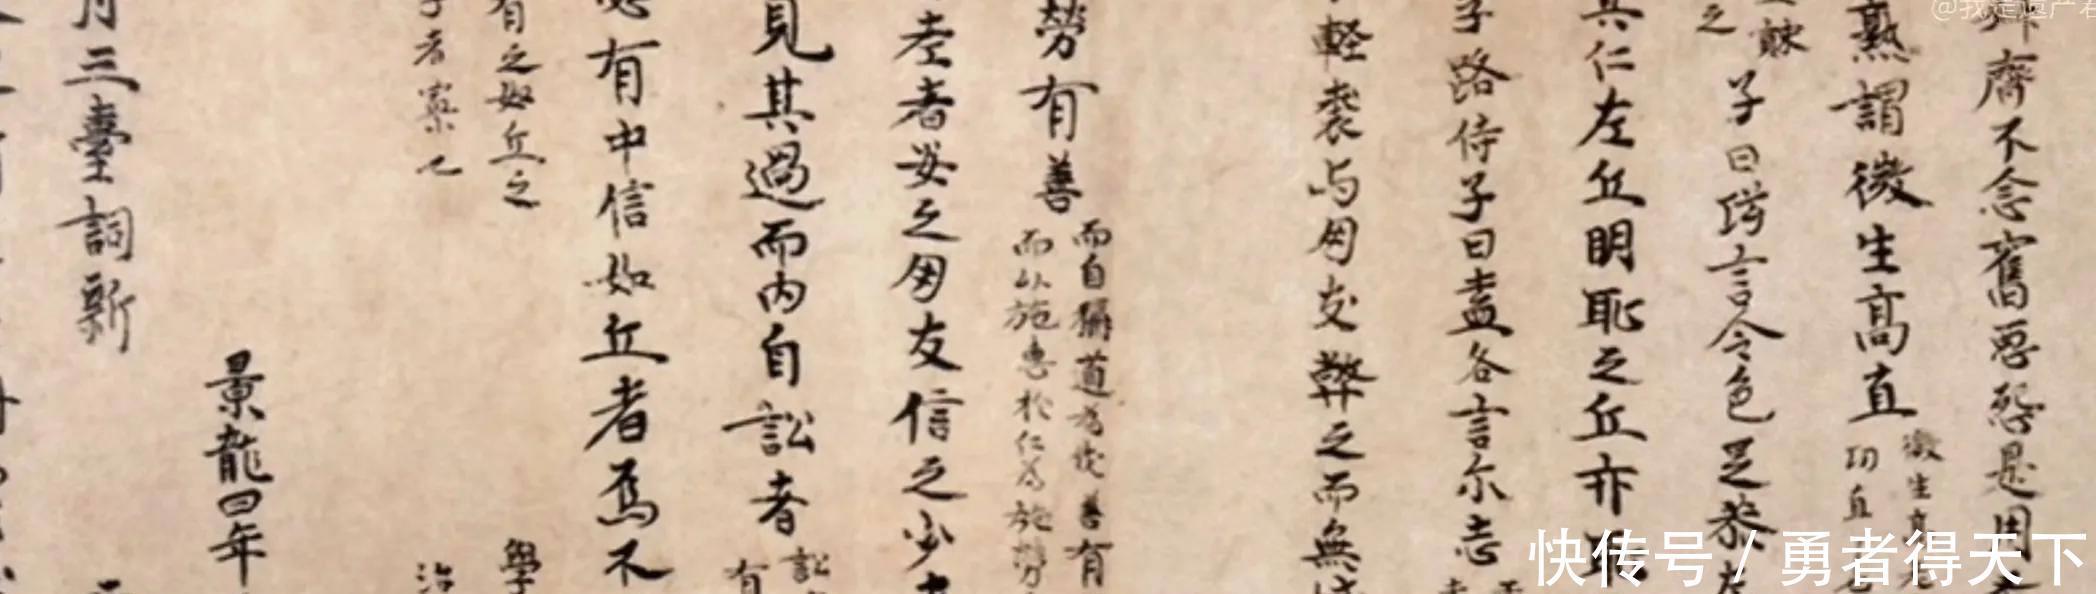 齊不念舊惡怨是用
孰謂微生高直
微生
子曰巧言令色足恭
其仁左丘明恥之丘亦
子路侍子曰盍各言尔志
輕裘与朋友弊之而無
勞有善
而自稱道為伐善有
而以施惠於仁為施勞
老者安之朋友信之少
見其過而内自訟者
訟
有
有中信如丘者焉不
有之如丘之
學
子者寡
治
景龍四年
月三臺詞新
@我是遗产君
快传号 / 勇者得天下